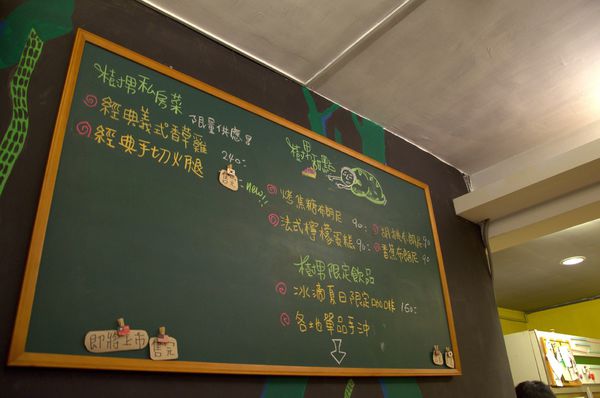 樹男私房菜
限量供應
經典義式香草雞 240.-
經典手切火腿
售完
new!!
樹男甜點
烤焦糖布朗尼 90.-
法式檸檬蛋糕 90.-
胡桃布朗尼 90
香蕉布朗尼 90
樹男限定飲品
冰滴夏日限定 160.-
各地單品手沖
即將上市
售完